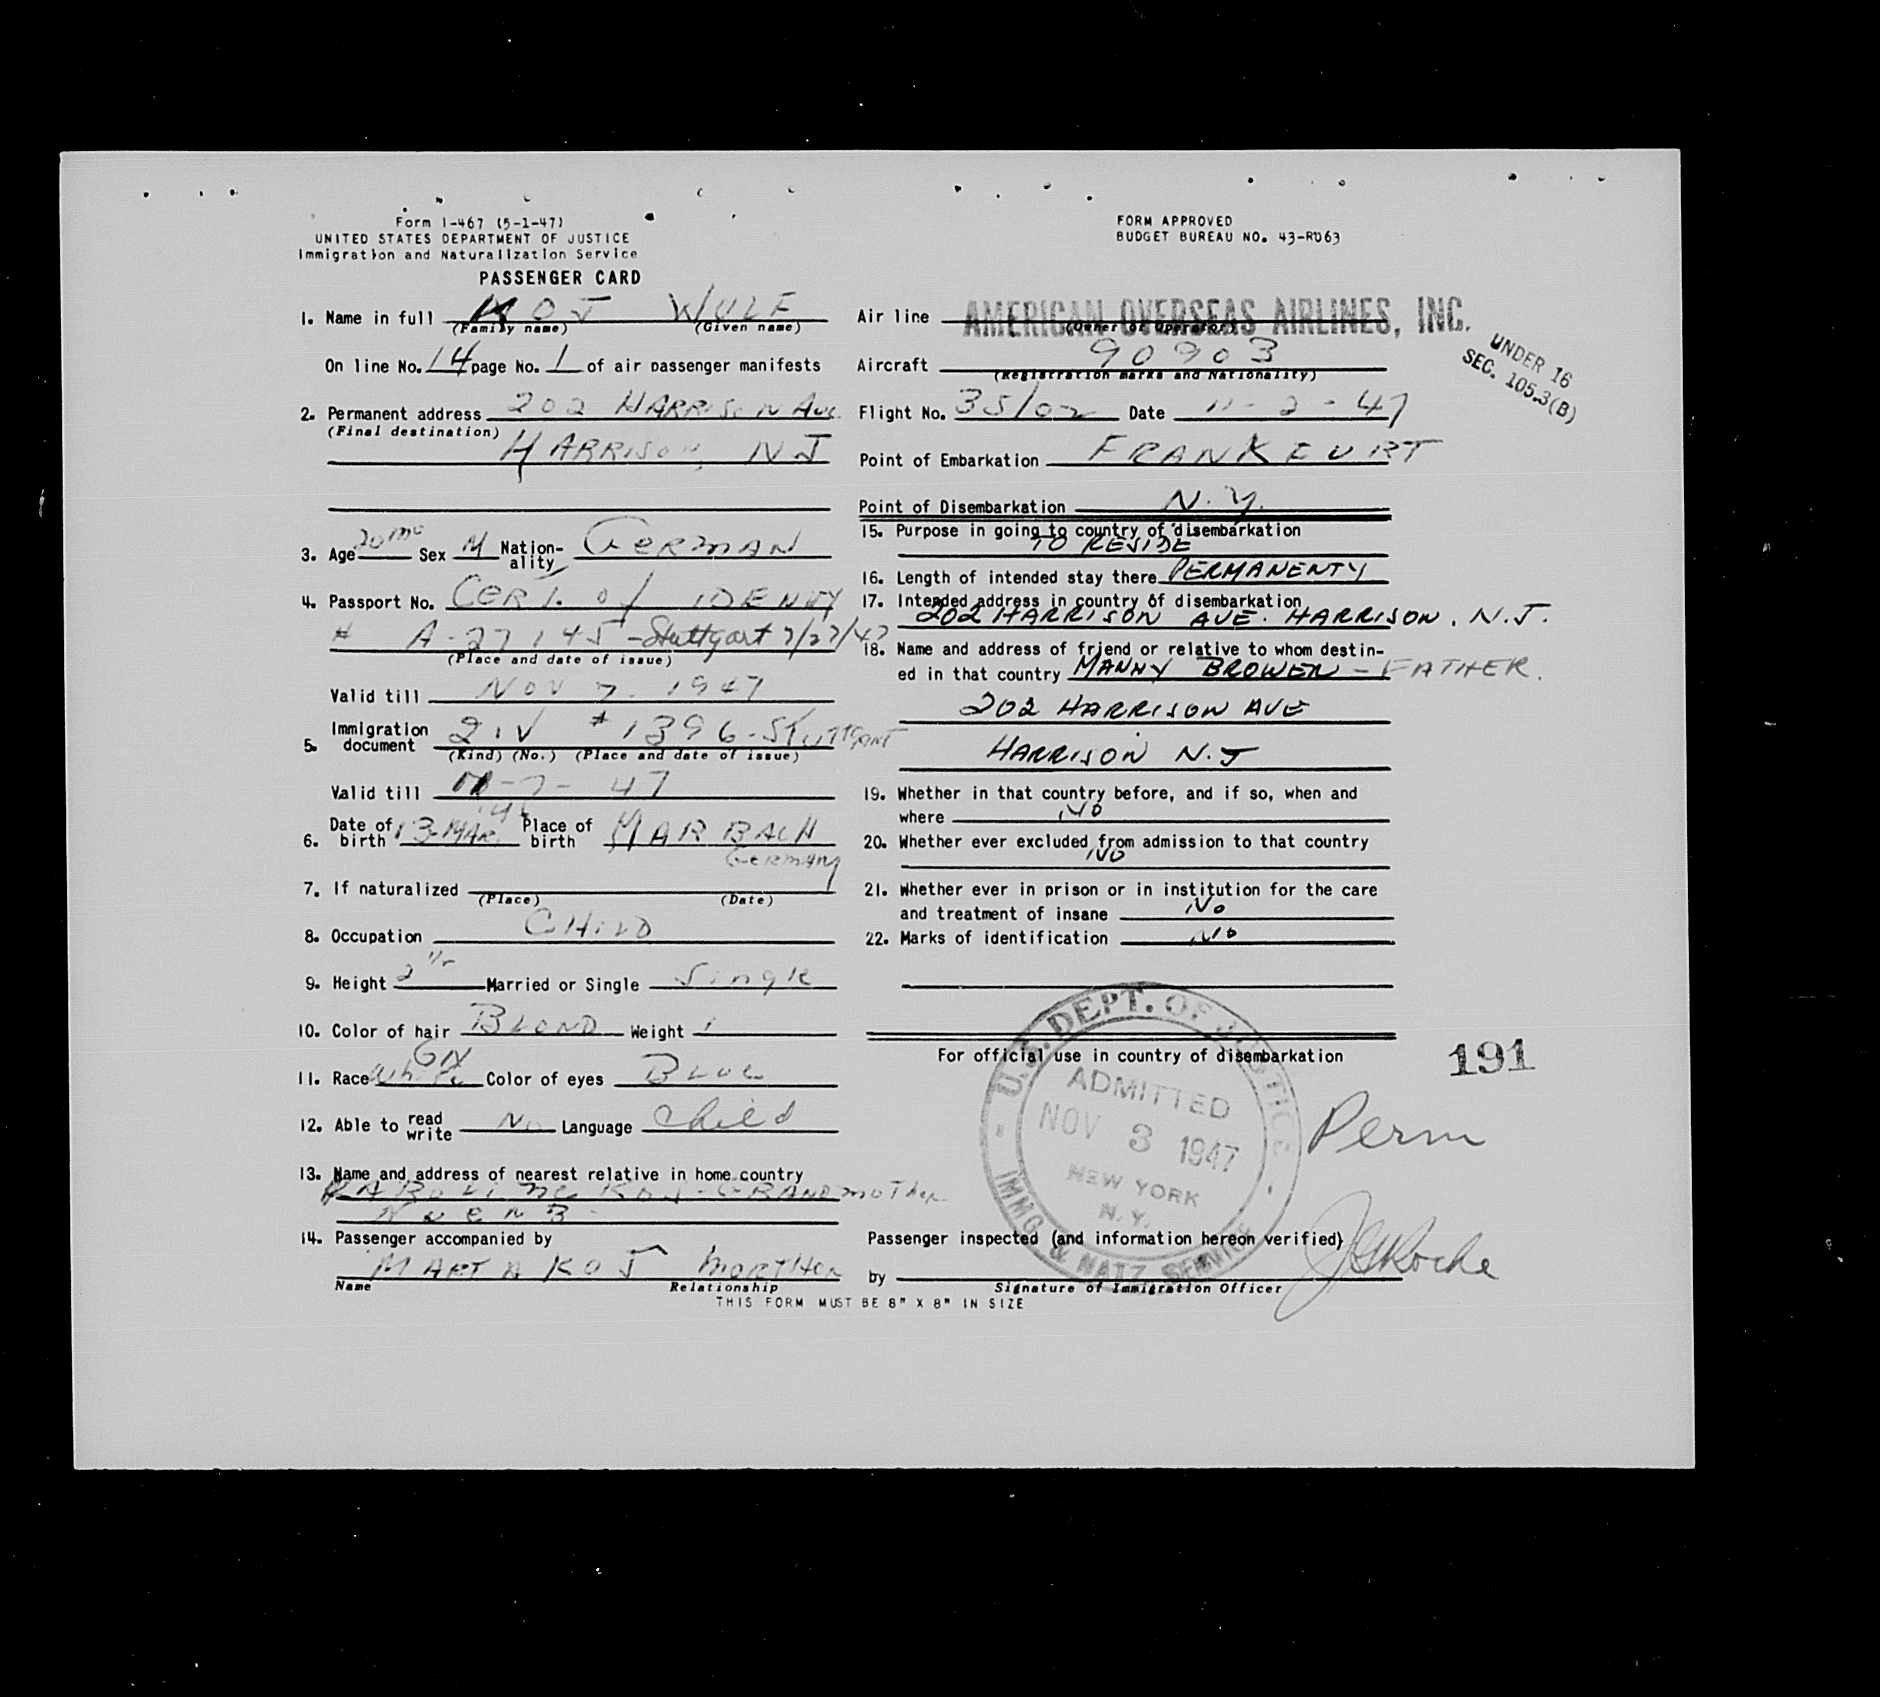 Form I-467 (5-1-47)
UNITED STATES DEPARTMENT OF JUSTICE
Immigration and Naturalization Service
PASSENGER CARD
1. Name in full KOJ WULF
(Family name) (Given name)
On line No. 14 page No. 1 of air passenger manifests
2. Permanent address 202 HARRISON AVE.
(Final destination) HARRISON, NJ
3. Age 20 mo Sex M Nationality GERMAN
4. Passport No. CERT. of IDENTITY
# A-27145-Stuttgart 7/27/47
(Place and date of issue)
Valid till NOV 7. 1947
5. Immigration document 2IV #1396-STUTTGART
(Kind) (No.) (Place and date of issue)
Valid till 11-7-47
6. Date of birth 13 MAR. Place of birth MARBACH
GERMANY
7. If naturalized
(Place) (Date)
8. Occupation CHILD
9. Height 2 Married or Single Single
10. Color of hair BLOND Weight
11. Race White Color of eyes BLUE
12. Able to read write No Language Child
13. Name and address of nearest relative in home country
KAROLINE KOJ - GRANDMOTHER
14. Passenger accompanied by
MARTA KOJ MORTHER
Name Relationship
THIS FORM MUST BE 8" X 8" IN SIZE
FORM APPROVED
BUDGET BUREAU NO. 43-R063
Air line AMERICAN OVERSEAS AIRLINES, INC.
(Owner or Operator)
Aircraft 90903
(Registration marks and Nationality)
UNDER 16
SEC. 105.3(B)
Flight No. 35/02 Date 11-2-47
Point of Embarkation FRANKFURT
Point of Disembarkation N.Y.
15. Purpose in going to country of disembarkation
TO RESIDE
16. Length of intended stay there PERMANENTY
17. Intended address in country of disembarkation
202 HARRISON AVE. HARRISON. N.J.
18. Name and address of friend or relative to whom destin-
ed in that country MANNY BROWEN - FATHER.
202 HARRISON AVE
HARRISON N.J
19. Whether in that country before, and if so, when and
where NO
20. Whether ever excluded from admission to that country
NO
21. Whether ever in prison or in institution for the care
and treatment of insane No
22. Marks of identification No
For official use in country of disembarkation
191
U.S. DEPT. OF JUSTICE
ADMITTED
NOV 3 1947
NEW YORK
N.Y.
IMMG. & NATZ. SERVICE
Perm
Passenger inspected (and information hereon verified)
by J Roche
Signature of Immigration Officer